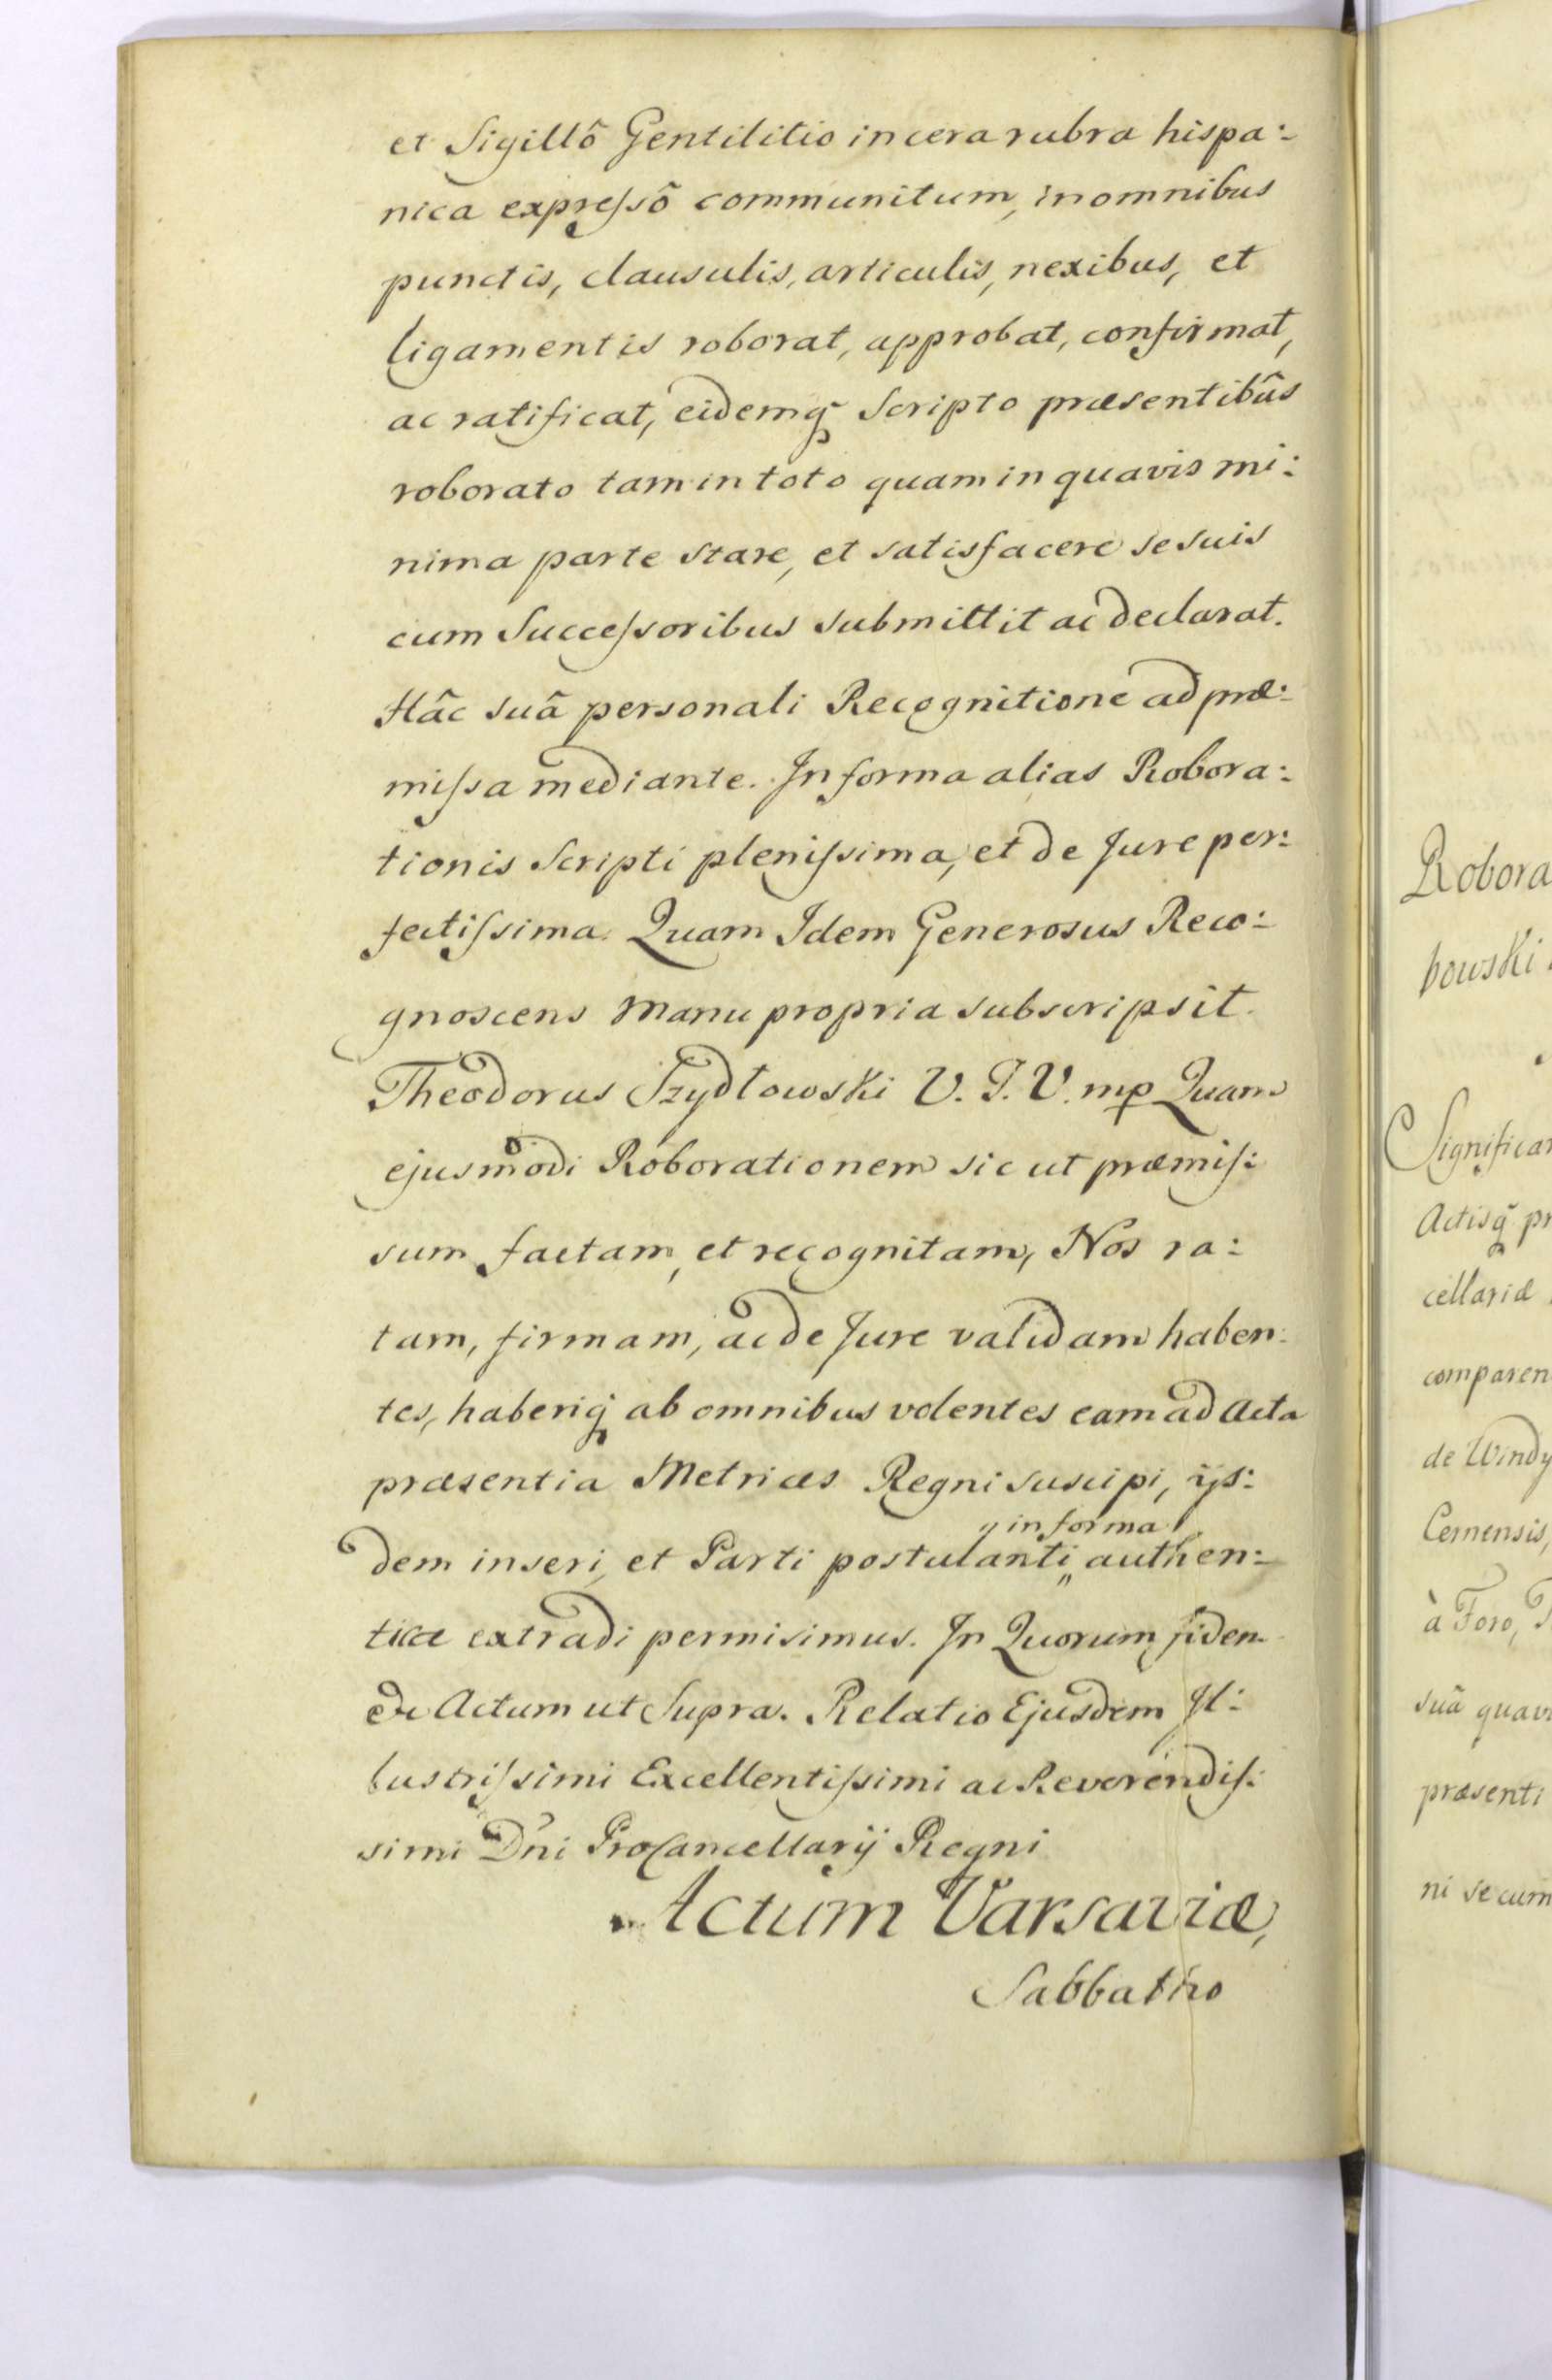 et Sigillô Gentilitio in cera rubra hispa:
nica expressô communitum, in omnibus
punctis, clausulis, articulis, nexibus, et
ligamentis roborat, approbat, confirmat,
ac ratificat, eidemq̃ Scripto præsentibûs
roborato tam in toto quam in quavis mi:
nima parte stare, et satisfacere se suis
cum Successoribus submittit ac declarat.
Hâc suâ personali Recognitione ad præ:
missa mediante. In forma alias Robora:
tionis Scripti plenissima, et de Jure per:
fectissima. Quam Idem Generosus Reco:
gnoscens manu propria subscripsit.
Theodorus Szydłowski V. I. V. mp Quam
ejusmodi Roborationem sic ut præmis:
sum factam, et recognitam, Nos ra:
tam, firmam, ac de Jure validam haben:
tes, haberiq̃ ab omnibus volentes eam ad Acta
præsentia Metrices Regni suscipi, ijs:
in forma
dem inseri, et Parti postulanti „ authen:
tica extradi permisimus. In Quorum fidem
Actum ut Supra. Relatio Ejusdem Il:
lustrissimi Excellentissimi ac Reverendis:
simi Dñi ProCancellarij Regni
Actum Varsaviæ,
Sabbatho
Robora
bowski
Significa
Actisq̃ pr
cellariæ
comparen
de Windy
Cernensis,
à Foro,
suâ quav
præsenti
ni se cum